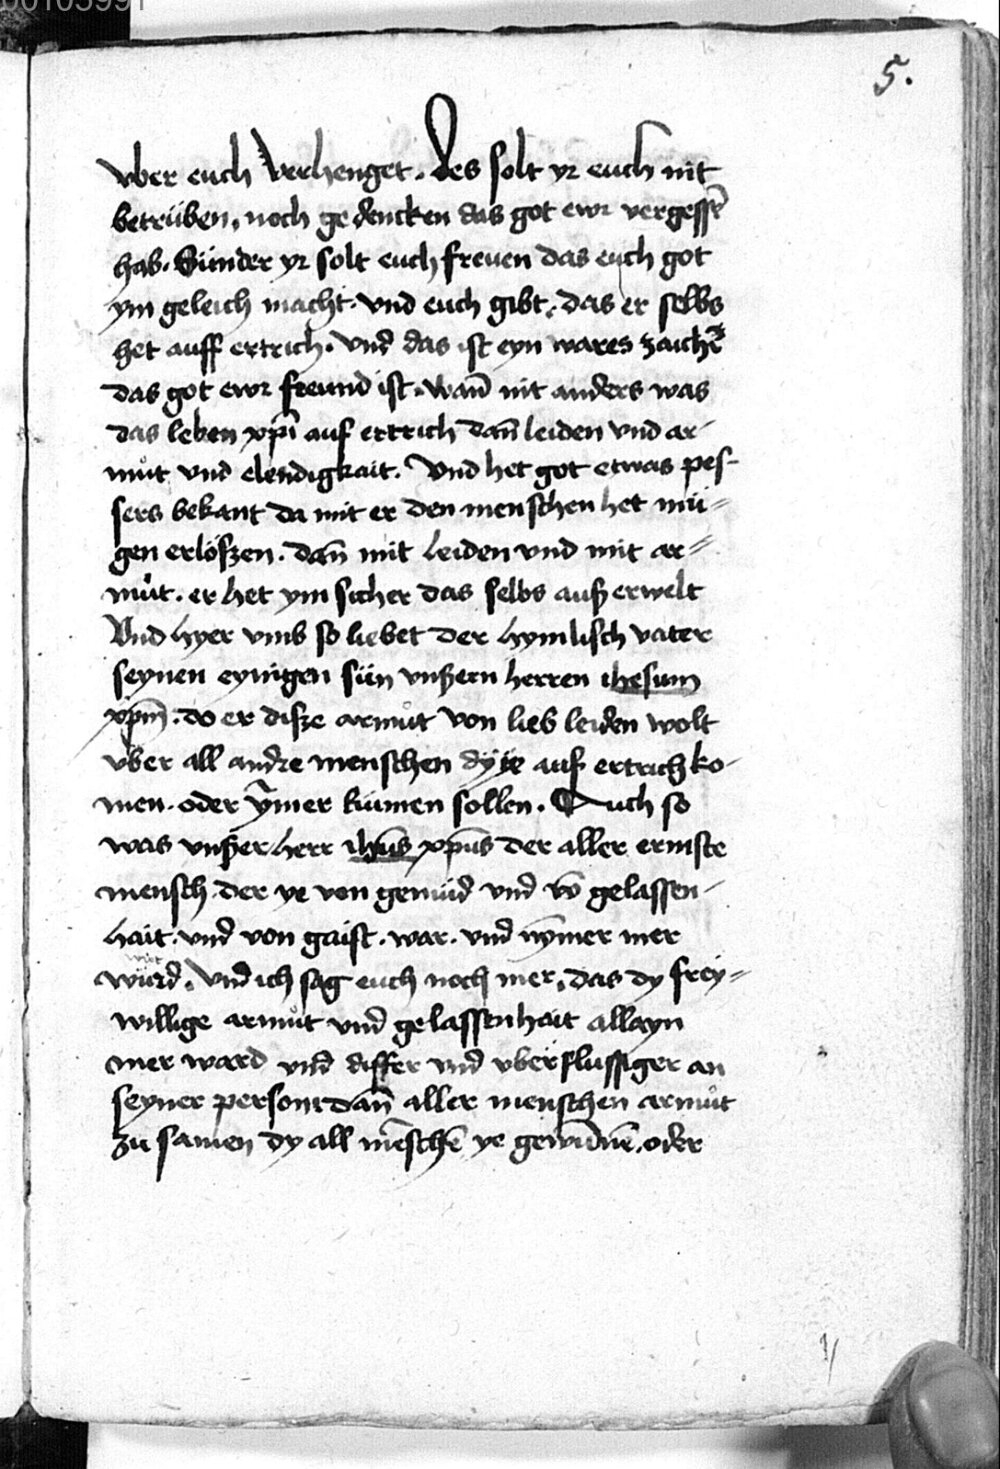 00103991
5.
vber euch verhenget. des solt yr euch nit
betrüben, noch gedencken das got ewr vergessē
hab. Sünder yr solt euch freuen das euch got
ym geleich macht. vnd euch gibt, das er selbs
het auff ertrich. vnd das ist eyn wares zaichē
das got ewr freund ist. wañ nit anders was
das leben xp̄i auf ertrich dañ leiden vnd ar-
můt vnd elendigkait. Vnd het got etwas pes-
sers bekant da mit er den menschen het mü-
gen erlöszen. dañ mit leiden vnd mit ar-
můt. er het ym sicher das selbs auß erwelt
Vnd hyer vmb so liebet der hymlisch vater
seynen eynigen sün vnßern herren ihesum
xp̄m. do er disze armůt von lieb leiden wolt
vber all andre menschen dy ye auf ertrich ko-
men. oder ȳmer kümen sollen. Auch so
was vnßer herr ihūs xp̄us der aller ermste
mensch der ye von gemüd vnd vō gelassen-
hait. vnd von gaist. war. vnd nȳmer mer
würd. Vnd ich sag euch noch mer, das dy frey-
willige armůt vnd gelassenhait allayn
mer ward vnd differ vnd vberflussiger an
seyner person dañ aller menschen armůt
zu samen dy all mēschē ye gewunnē. oder